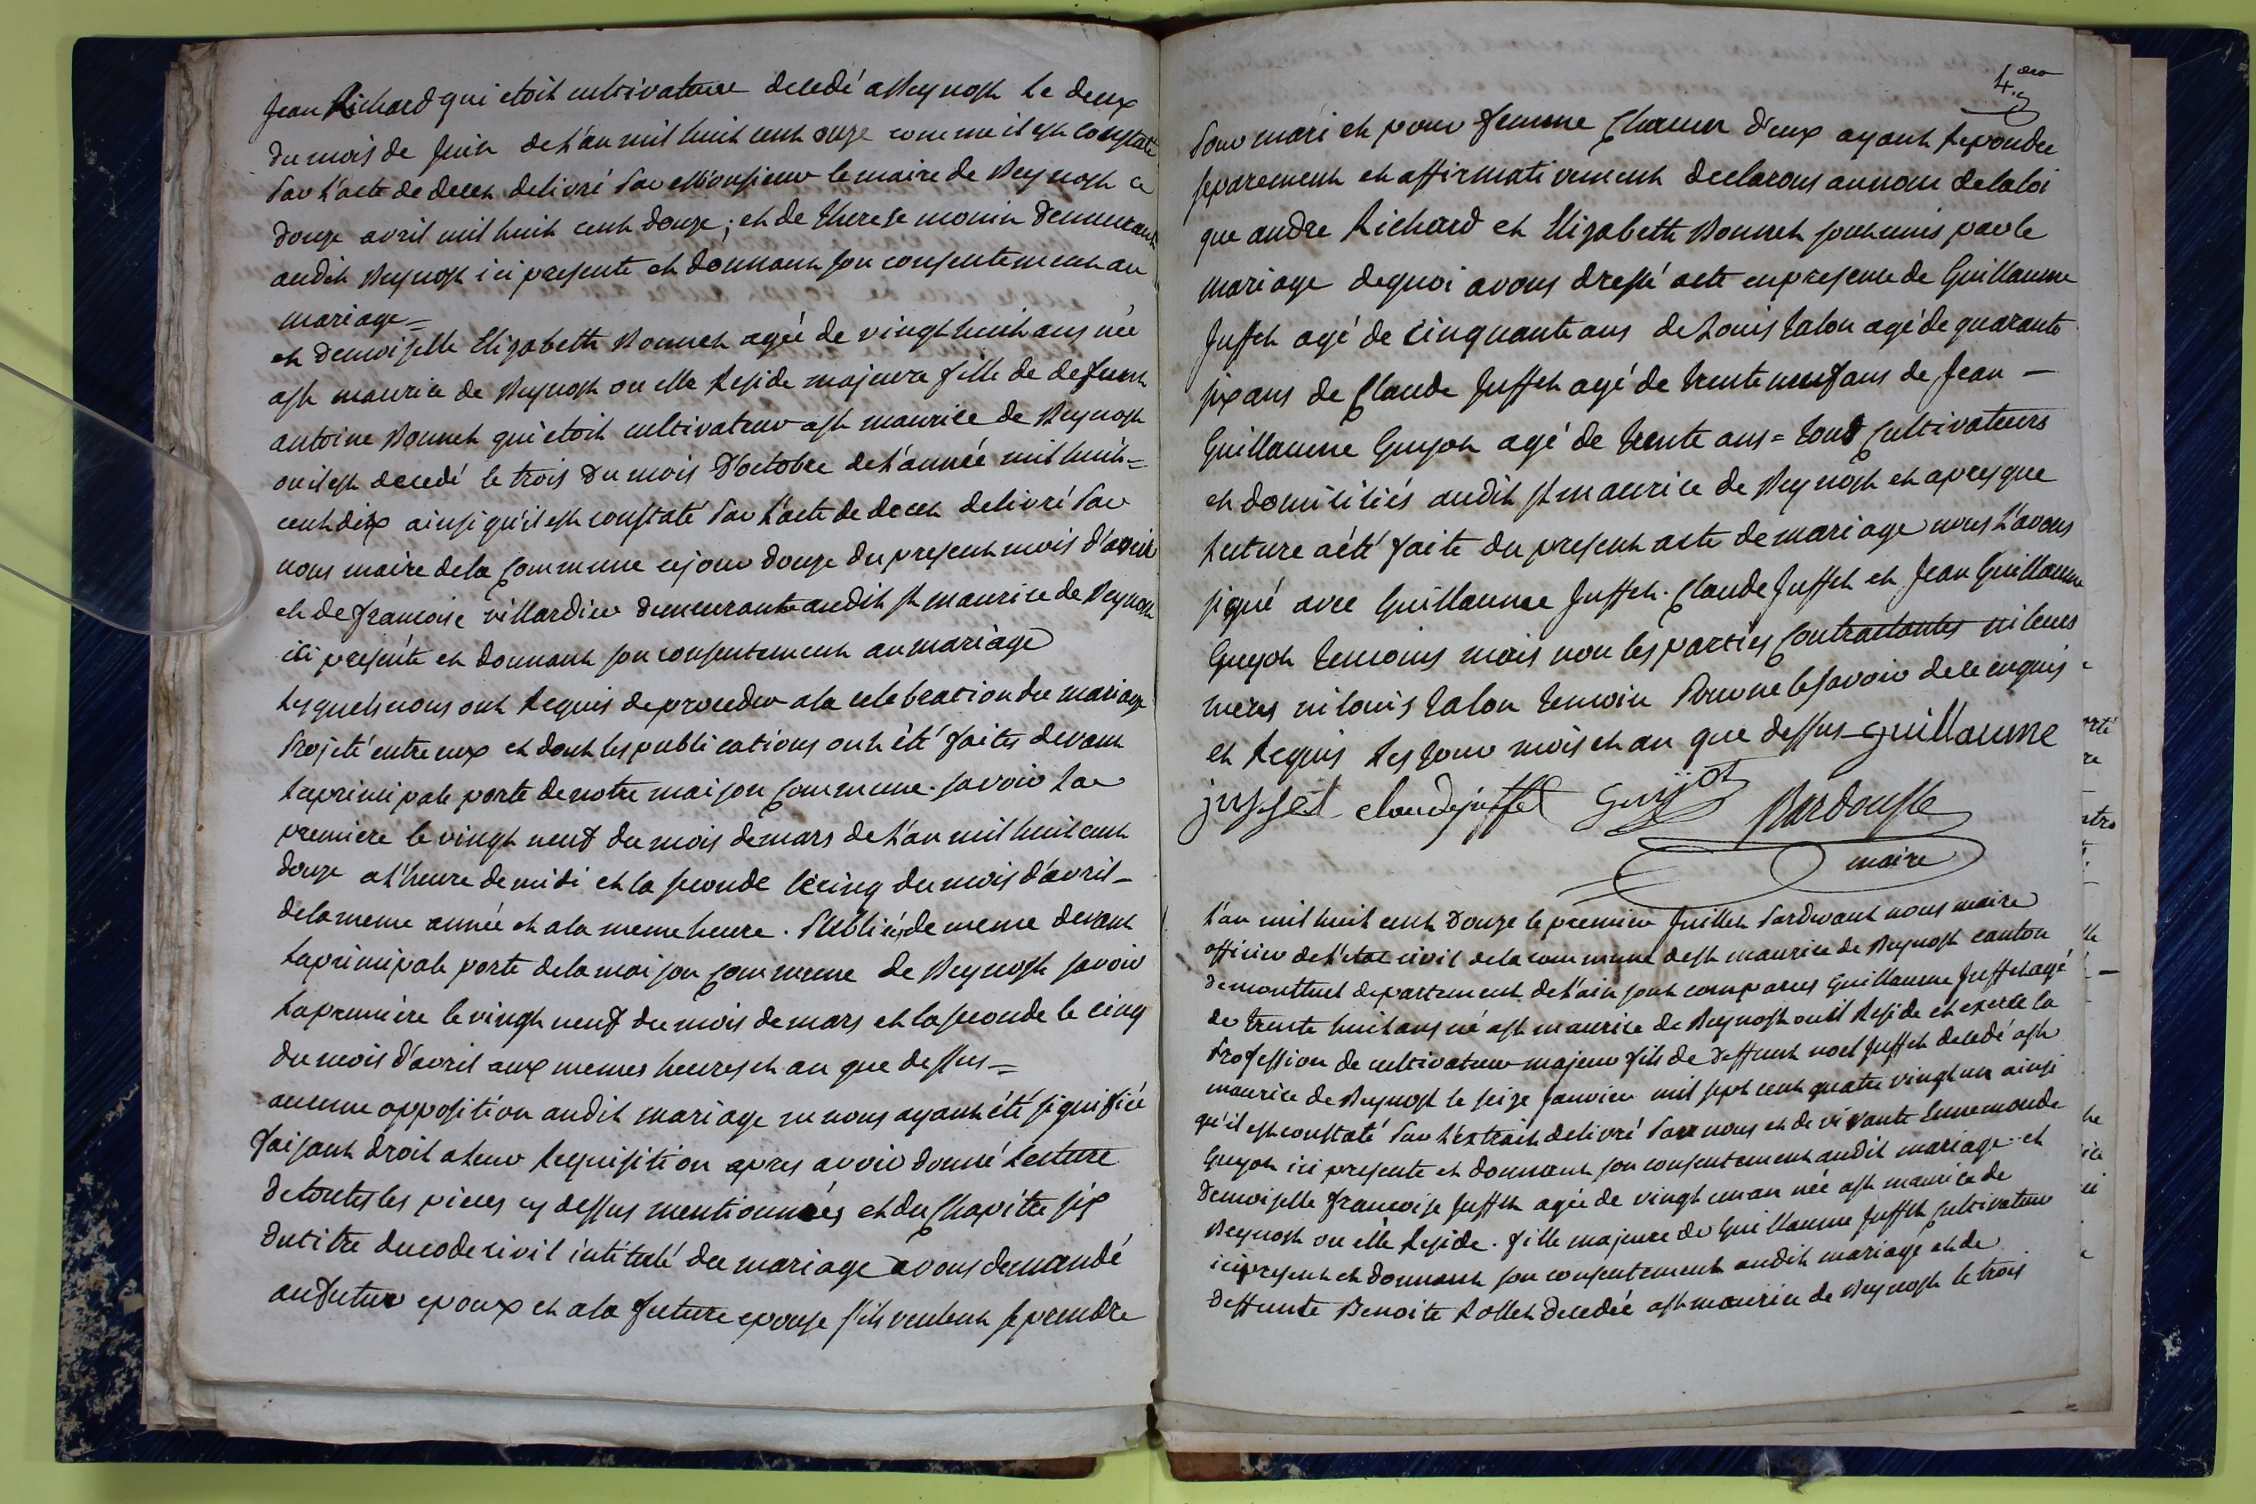 Jean Richard qui etoit cultivateur decedé a Beynost le deux
du mois de Juin de l'an mil huit cent onze comme il est constaté
Par l'acte de deces delivré Par Monsieur le maire de Beynost ce
douze avril mil huit cent douze; et de therese monin demeurant
audit Beynost ici presente et donnant son consentement au
mariage =
et demoiselle Elizabeth Bonnet agée de vingt huit ans née
a st maurice de Beynost ou elle Reside majeure fille de defunt
antoine Bonnet qui etoit cultivateur a st maurice de Beynost
ou il est decedé le trois du mois D'octobre de l'année mil huit =
cent dix ainsi qu'il est constaté Par l'acte de deces delivré Par
nous maire de la Commune ce jour douze du present mois d'avril
et de francoise villardier demeurante audit st maurice de Beynost
ici presente et donnant son consentement au mariage
Lesquels nous ont Requis de proceder a la celebration du mariage
Projeté entre eux et dont les publications ont été faites devant
La principale porte de notre maison Commune. savoir La
premiere le vingt neuf du mois de mars de l'an mil huit cent
douze a l'heure de midi et la seconde le cinq du mois d'avril -
de la meme année et a la meme heure. Publiés de meme devant
La principale porte de la maison Commune de Beynost savoir
La premiere le vingt neuf du mois de mars et la seconde le cinq
du mois d'avril aux memes heures et an que dessus =
aucune opposition audit mariage ne nous ayant été signifiée
faisant droit a leur Requisition apres avoir donné Lecture
de toutes les pieces cy dessus mentionnées et du Chapitre six
du titre du code civil intitulé du mariage avons demandé
au futur epoux et a la future epouse s'ils veulent se prendre
4.
Pour mari et pour femme Chacun d'eux ayant Repondu
separement et affirmativement declarons au nom de la loi
que andre Richard et Elizabeth Bonnet sont unis par le
mariage de quoi avons dressé acte en presence de Guillaume
Jusset agé de Cinquante ans de Louis talon agé de quarante
six ans de Claude Jusset agé de trente neuf ans de Jean -
Guillaume Guyot agé de trente ans = tous Cultivateurs
et domiciliés audit st maurice de Beynost et apres que
Lecture a été faite du present acte de mariage nous l'avons
signé avec Guillaume Jusset. Claude Jusset et Jean Guillaume
Guyot temoins mais non les parties Contractantes ni leurs
meres ni louis talon temoin Pour ne le savoir de ce enquis
et Requis Les Jour mois et an que dessus Guillaume
jusset claude jusset Guyot Bardousse
maire
L'an mil huit cent douze le premier Juillet Pardevant nous maire
officier de l'etat civil de la commune de st maurice de Beynost canton
de montluel departement de l'ain sont comparus Guillaume Jusset agé
de trente huit ans né a st maurice de Beynost ou il Reside et exerce la
Profession de cultivateur majeur fils de deffunt noel Jusset decedé a st
maurice de Beynost le seize Janvier mil sept cent quatre vingt un ainsi
qu'il est constaté Par l'extrait delivré Par nous et de vivante Ennemonde
Guyot ici presente et donnant son consentement audit mariage. et
demoiselle francoise Jusset agée de vingt un an née a st maurice de
Beynost ou elle Reside. fille majeure de Guillaume Jusset Cultivateur
ici present et donnant son consentement audit mariage et de
deffunte Benoite Rollet decedée a st maurice de Beynost le trois